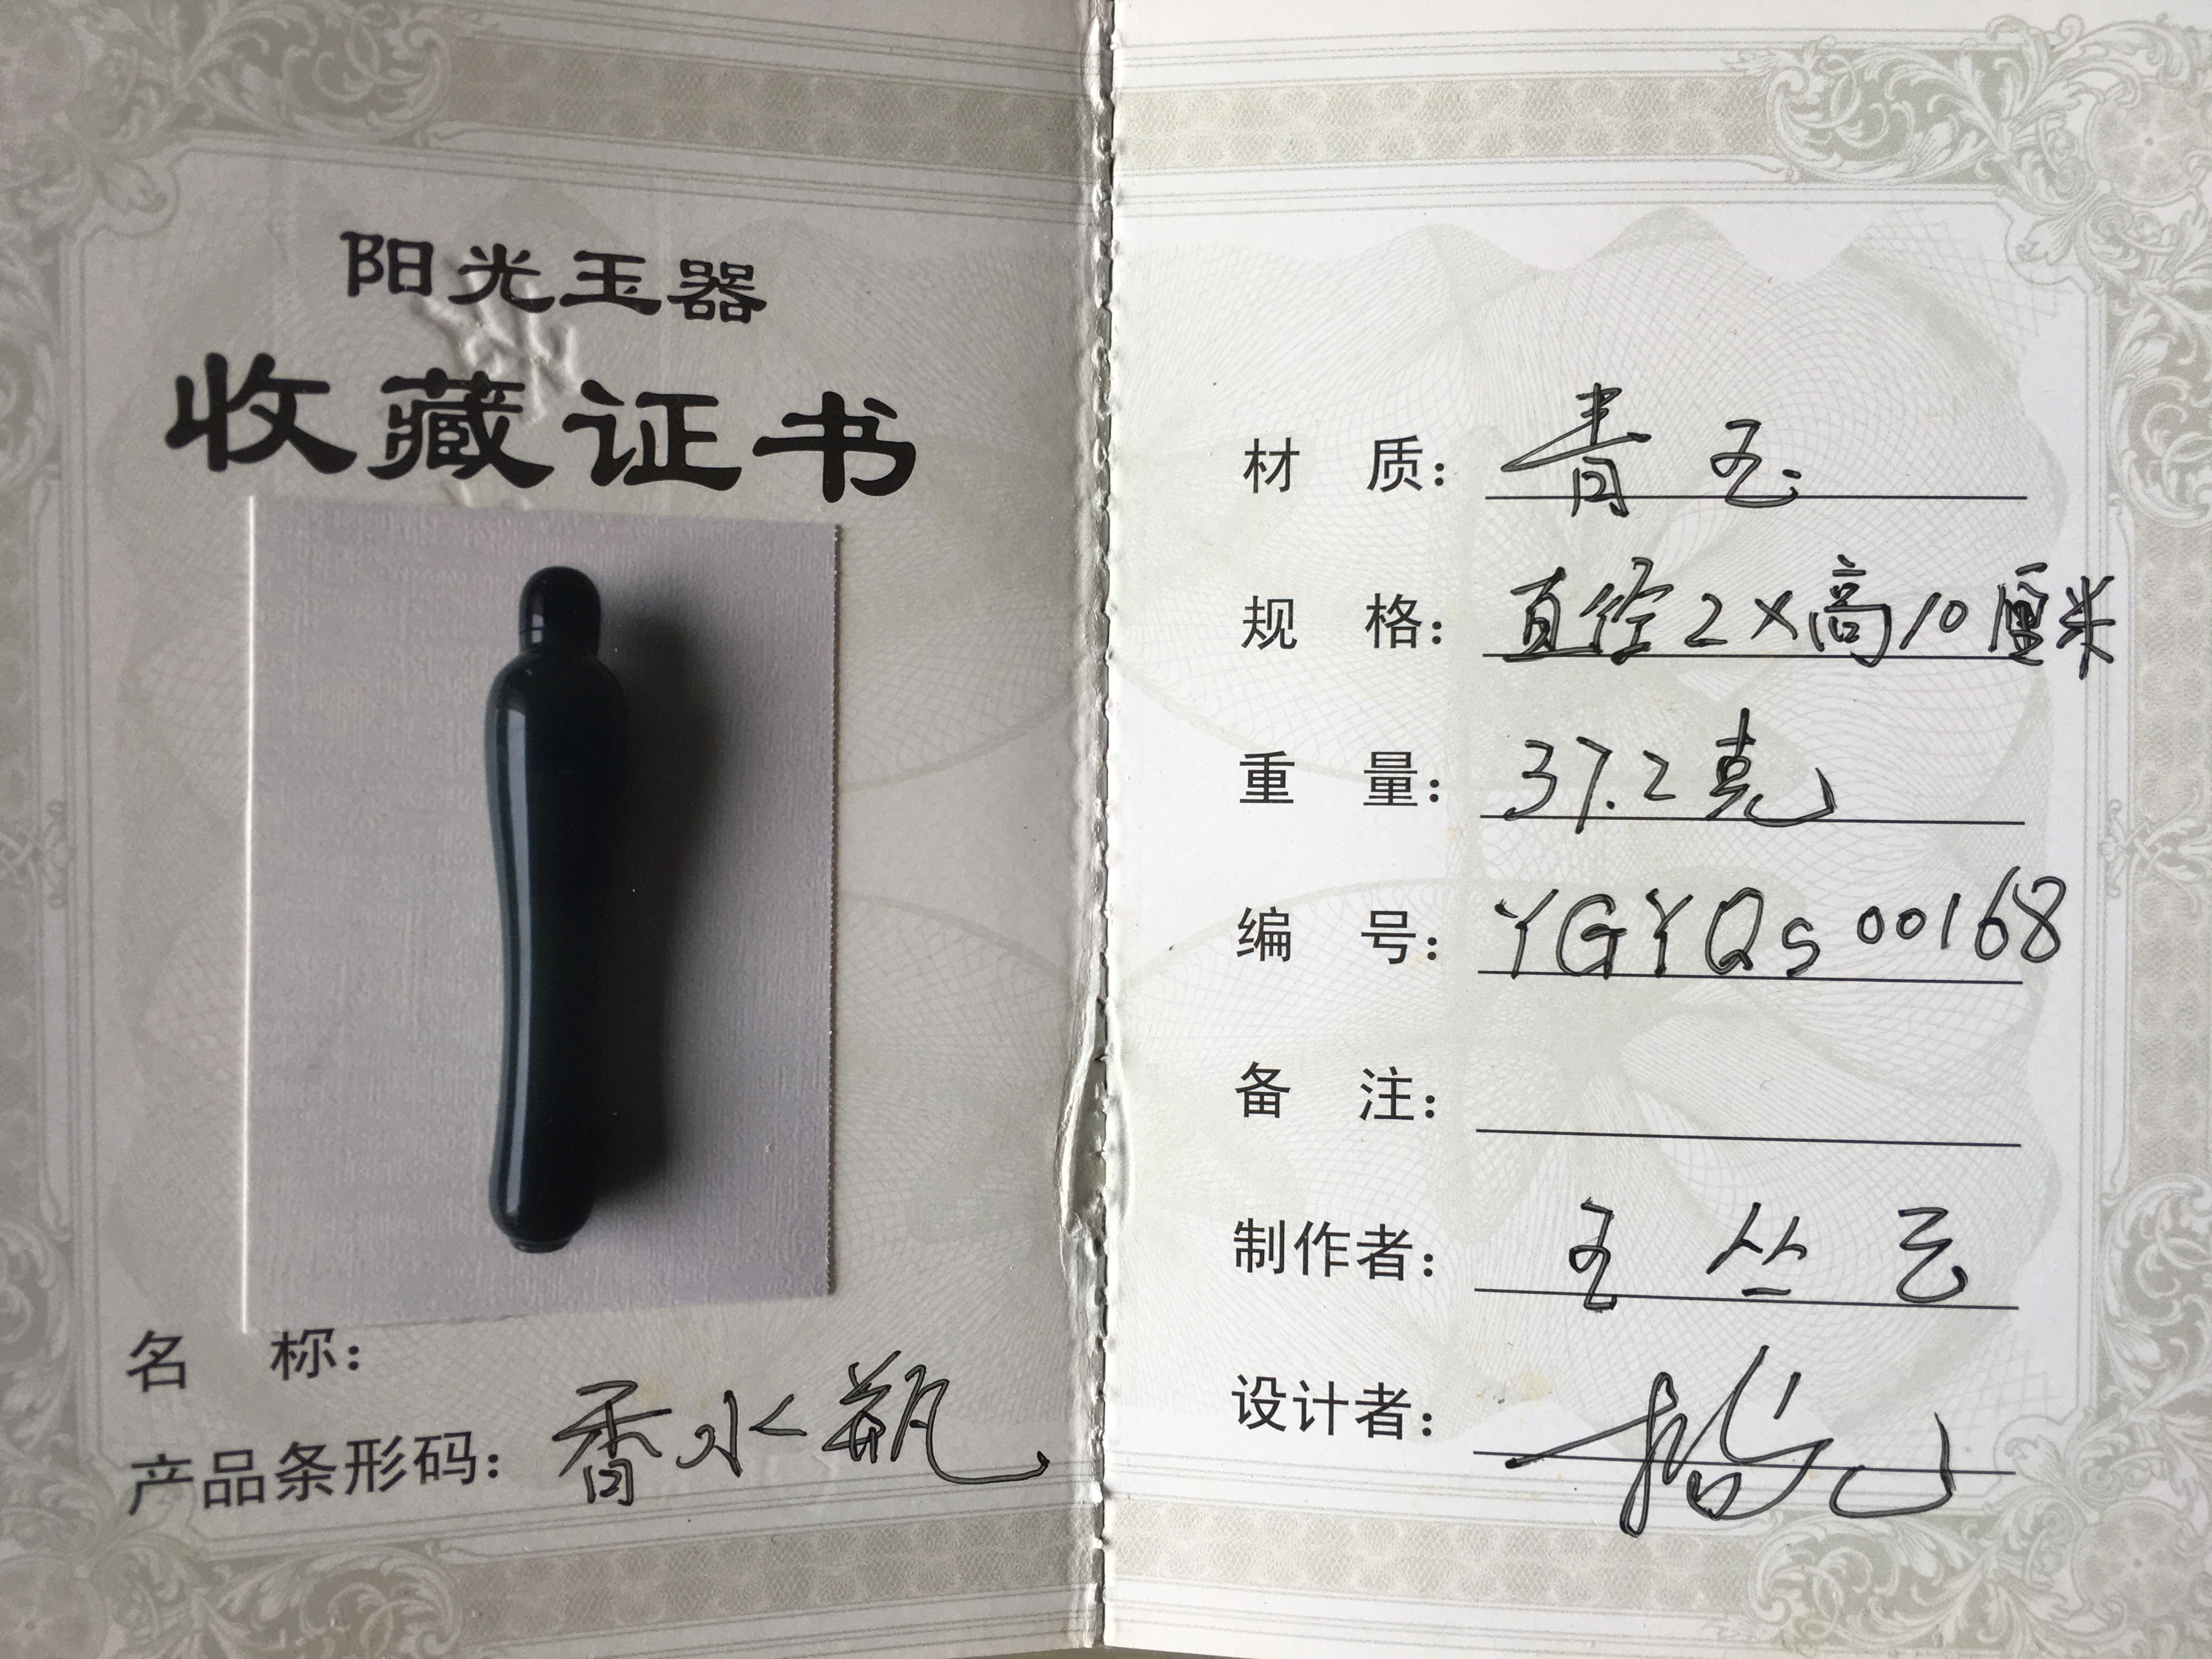 阳光玉器
收藏证书
名 称：
产品条形码：香水瓶
材 质：青玉
规 格：直径2×高10厘米
重 量：37.2克
编 号：YGYQS00168
备 注：
制作者：王丛云
设计者：